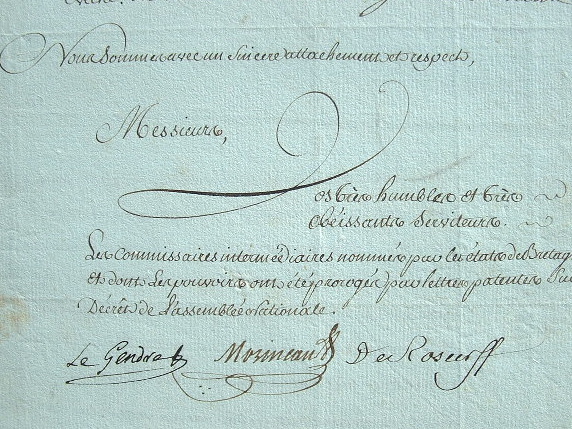 Nous sommes avec un sincere attachement et respect,
Messieurs,
os très humbles et très
obéissants serviteurs.
Les commissaires intermédiaires nommés par les états de Bretag
et dont les pouvoirs ont été prorogés par lettres patentes Sur
Décret de l'assemblée Nationale.
Le Gendre Morineau De Roscoff